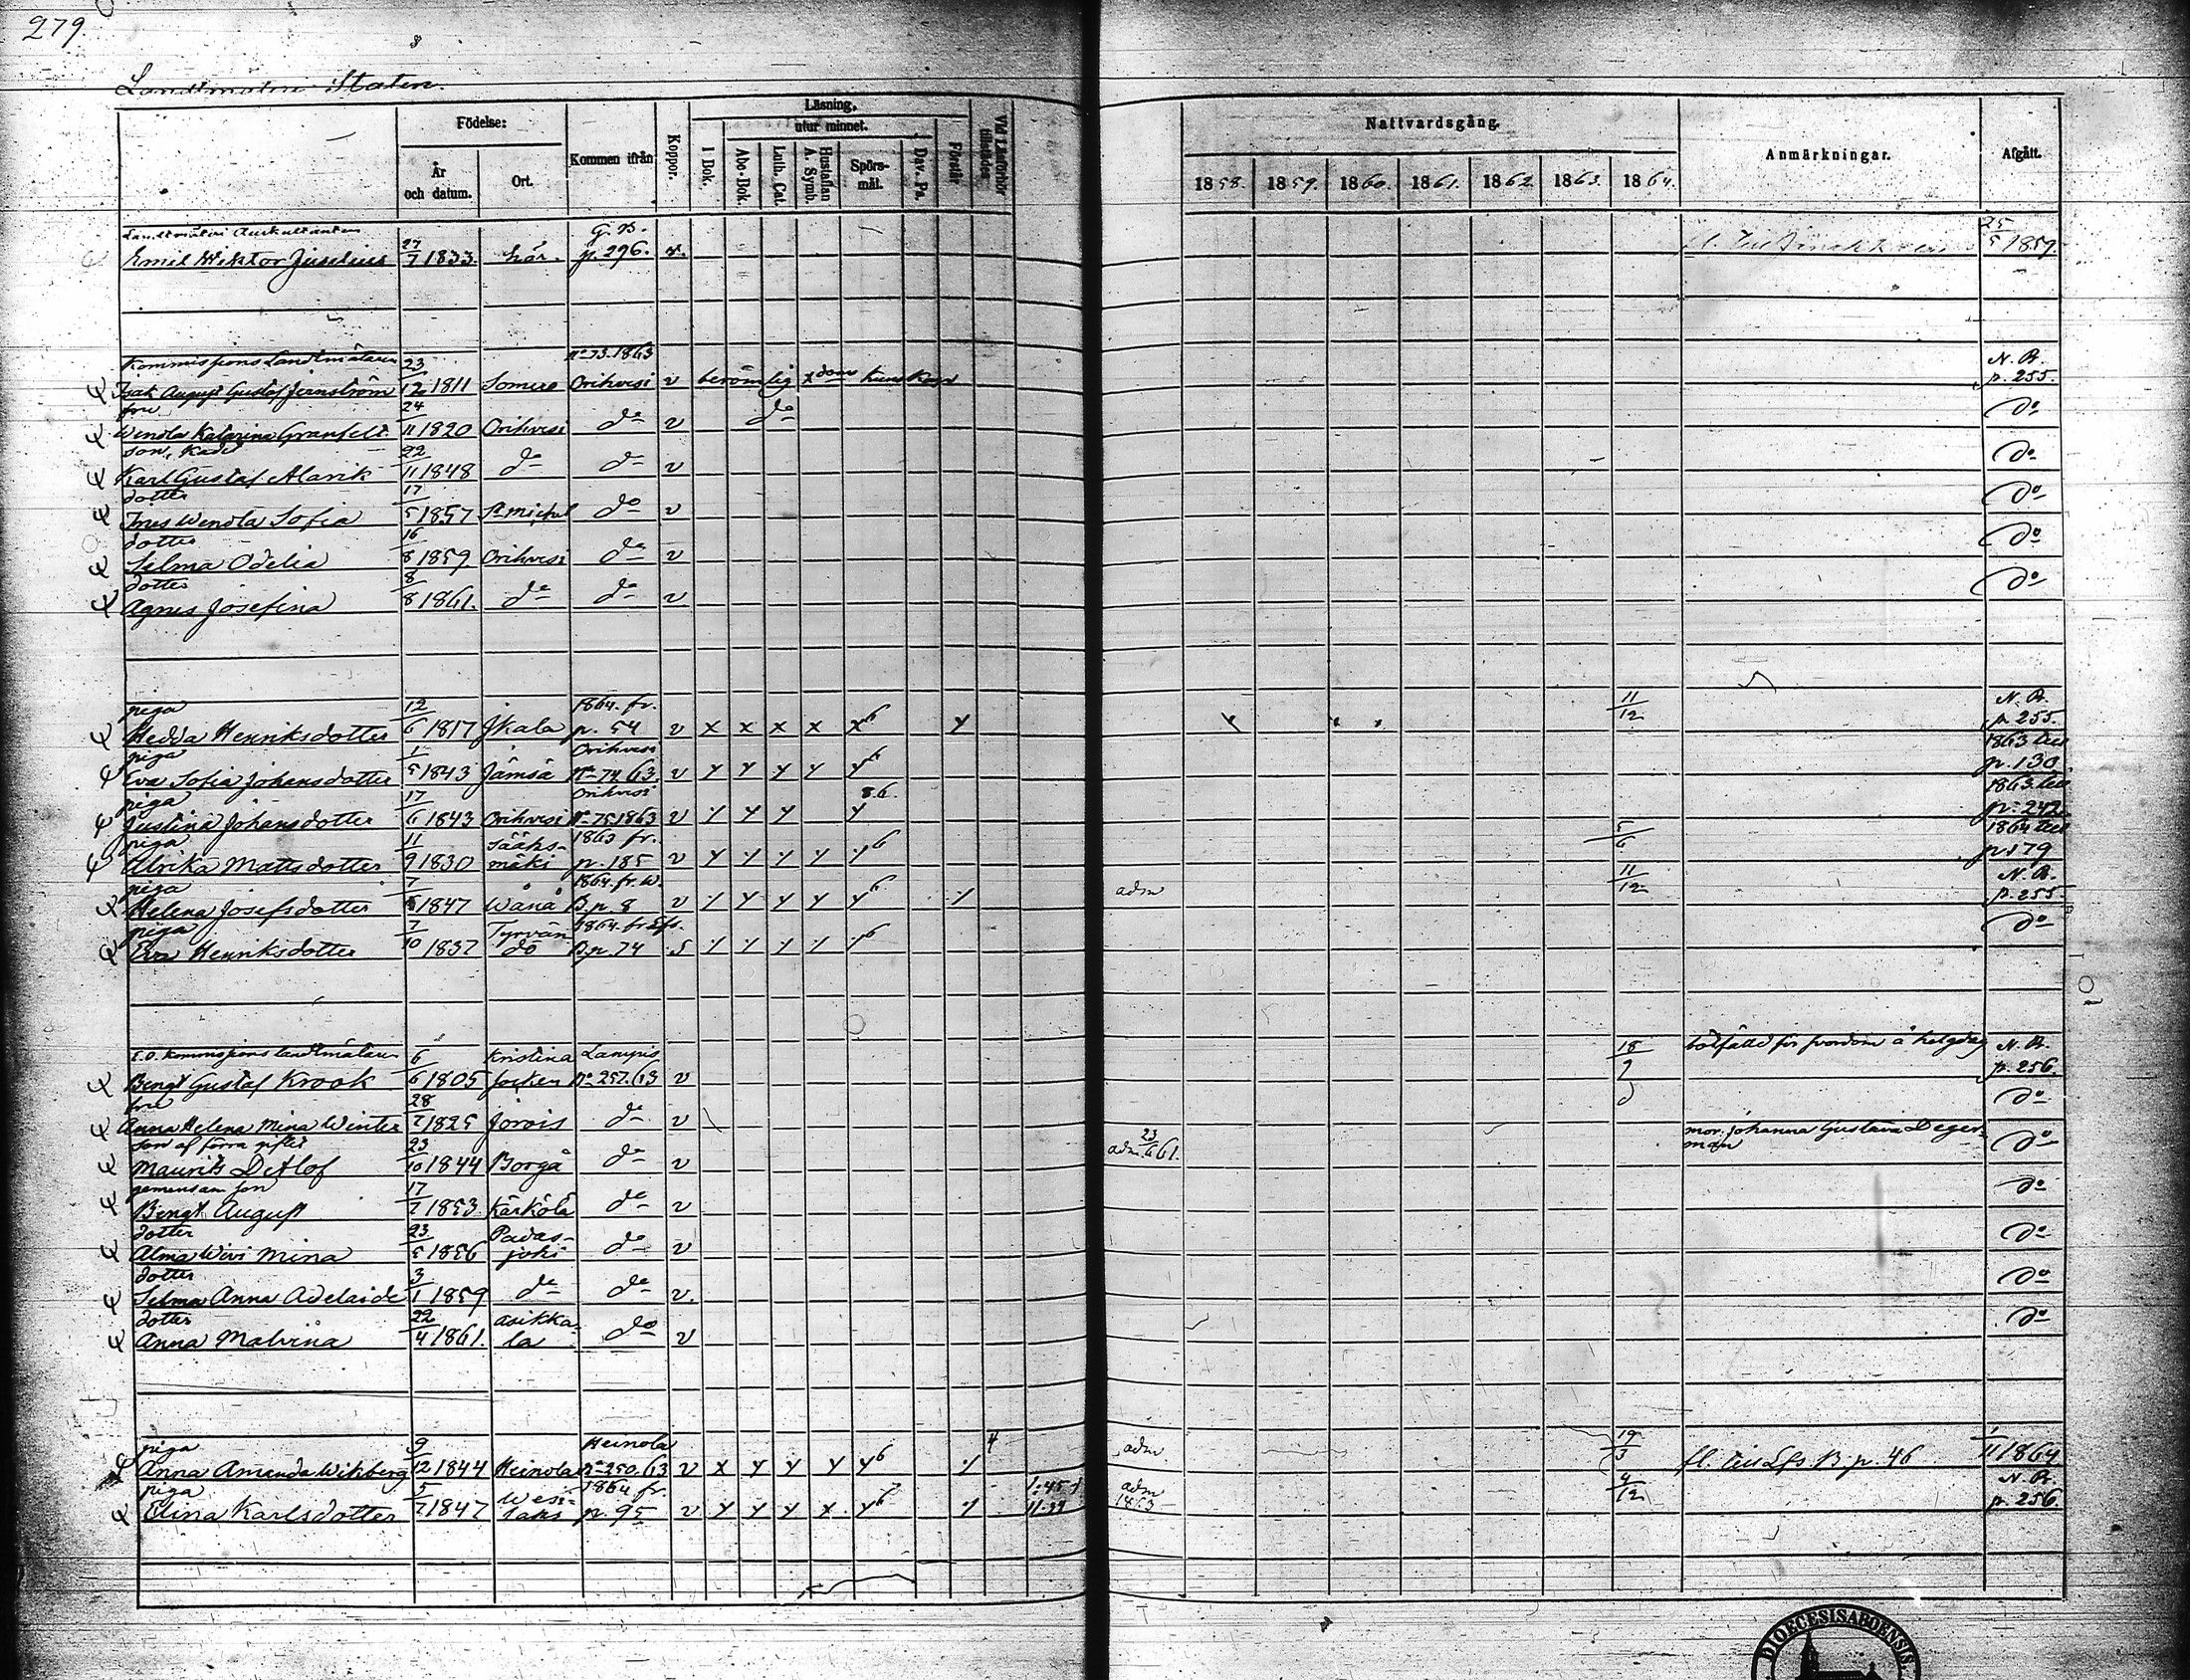 279.
Landtmäteri Staten.
Födelse:
År och datum.
Ort.
Kommen ifrån
Koppor.
Läsning,
utur minnet.
I Bok.
Abc-Bok.
Luth. Cat.
Hustaflan A. Symb.
Spörsmål.
Dav. Ps.
Förstår
Vid Läsförhör tillstädes
Nattvardsgång.
1858. 1859. 1860. 1861. 1862. 1863. 1864.
Anmärkningar.
Afgått.
Landtmäteri Auskultanten G. B. 25
Emil Wiktor Juselius 27/7 1833. här. p. 296. v. 5 1859.
Kommissions Landtmätaren 23 No 73.1863 N. B.
Isak August Gustaf Jernström 12 1811 Somero Orihvesi v berömlig xdoms kunskap p. 255.
fru 24
Wendla Katarina Granfelt 11 1820 Orihvesi do v do do
son, Kadet 22
Karl Gustaf Alarik 11 1848 do do v do
dotter 17
Ines Wendla Sofia 5 1857 St Michel do v do
dotter 16
Selma Odelia 8 1859 Orihvesi do v do
dotter 8
Agnes Josefina 8 1861. do do v do
piga 12 1864. fr. 11 N. B.
Hedda Henriksdotter 6 1817 Ikala p. 54 v x x x x x6 y 12 p. 255.
piga 1 Orihvesi 1863 till
Eva Sofia Johansdotter 5 1843 Jämsä No 74 63 v y y y y y6 p. 130
piga 17 Orihvesi 5.6. 1863 till
Justina Johansdotter 6 1843 Orihvesi No 75 1863 v y y y y p. 242
piga 11 Sääks- 1863 fr. 5 1864 till
Ulrika Mattsdotter 9 1830 mäki p. 185 v y y y y y6 6 p. 179
piga 7 1864. fr. W. 11 N. B.
Helena Josefsdotter 1847 Wånå B. p. 8 v y y y y y6 y adm 12 p. 255.
piga 7 Tyrvän- 1864. fr. Lfs.
Eva Henriksdotter 10 1837 dö B. p. 74 s y y y y y6 do
E.O. Kommissions landtmätaren 6 Kristina Lampis 18 N. B.
Bengt Gustaf Krook 6 1805 socken No 257. 63 v 2 p. 256.
fru 28
Anna Helena Mina Winter 7 1825 Jorois do v do
son af förra giftet 23 23 mor. Johanna Gustava Deger-
Maurits Detlof 10 1844 Borgå do v adm. 6 61. man do
gemensam son 17
Bengt August 7 1853. Kärkölä do v do
dotter 23 Padas-
Alma Wivi Mina 5 1856 joki do v do
dotter 3
Selma Anna Adelaide 1 1859 do do v. do
dotter 22 Asikka-
Anna Malvina 4 1861. la do v do
piga 9 Heinola 4 19 1
Anna Amanda Wikberg 12 1844 Heinola No 250. 63 v x y y y y6 y adm 3 fl. till Lfs B. p. 46 11 1864
piga 5 Wesi- 1864 fr. 1:45 adm 4 N. B.
Elina Karlsdotter 7 1847 laks p. 95 v y y y x y6 y 11.39 1863 12 p. 256.
DIOECESIS ABOENSIS.